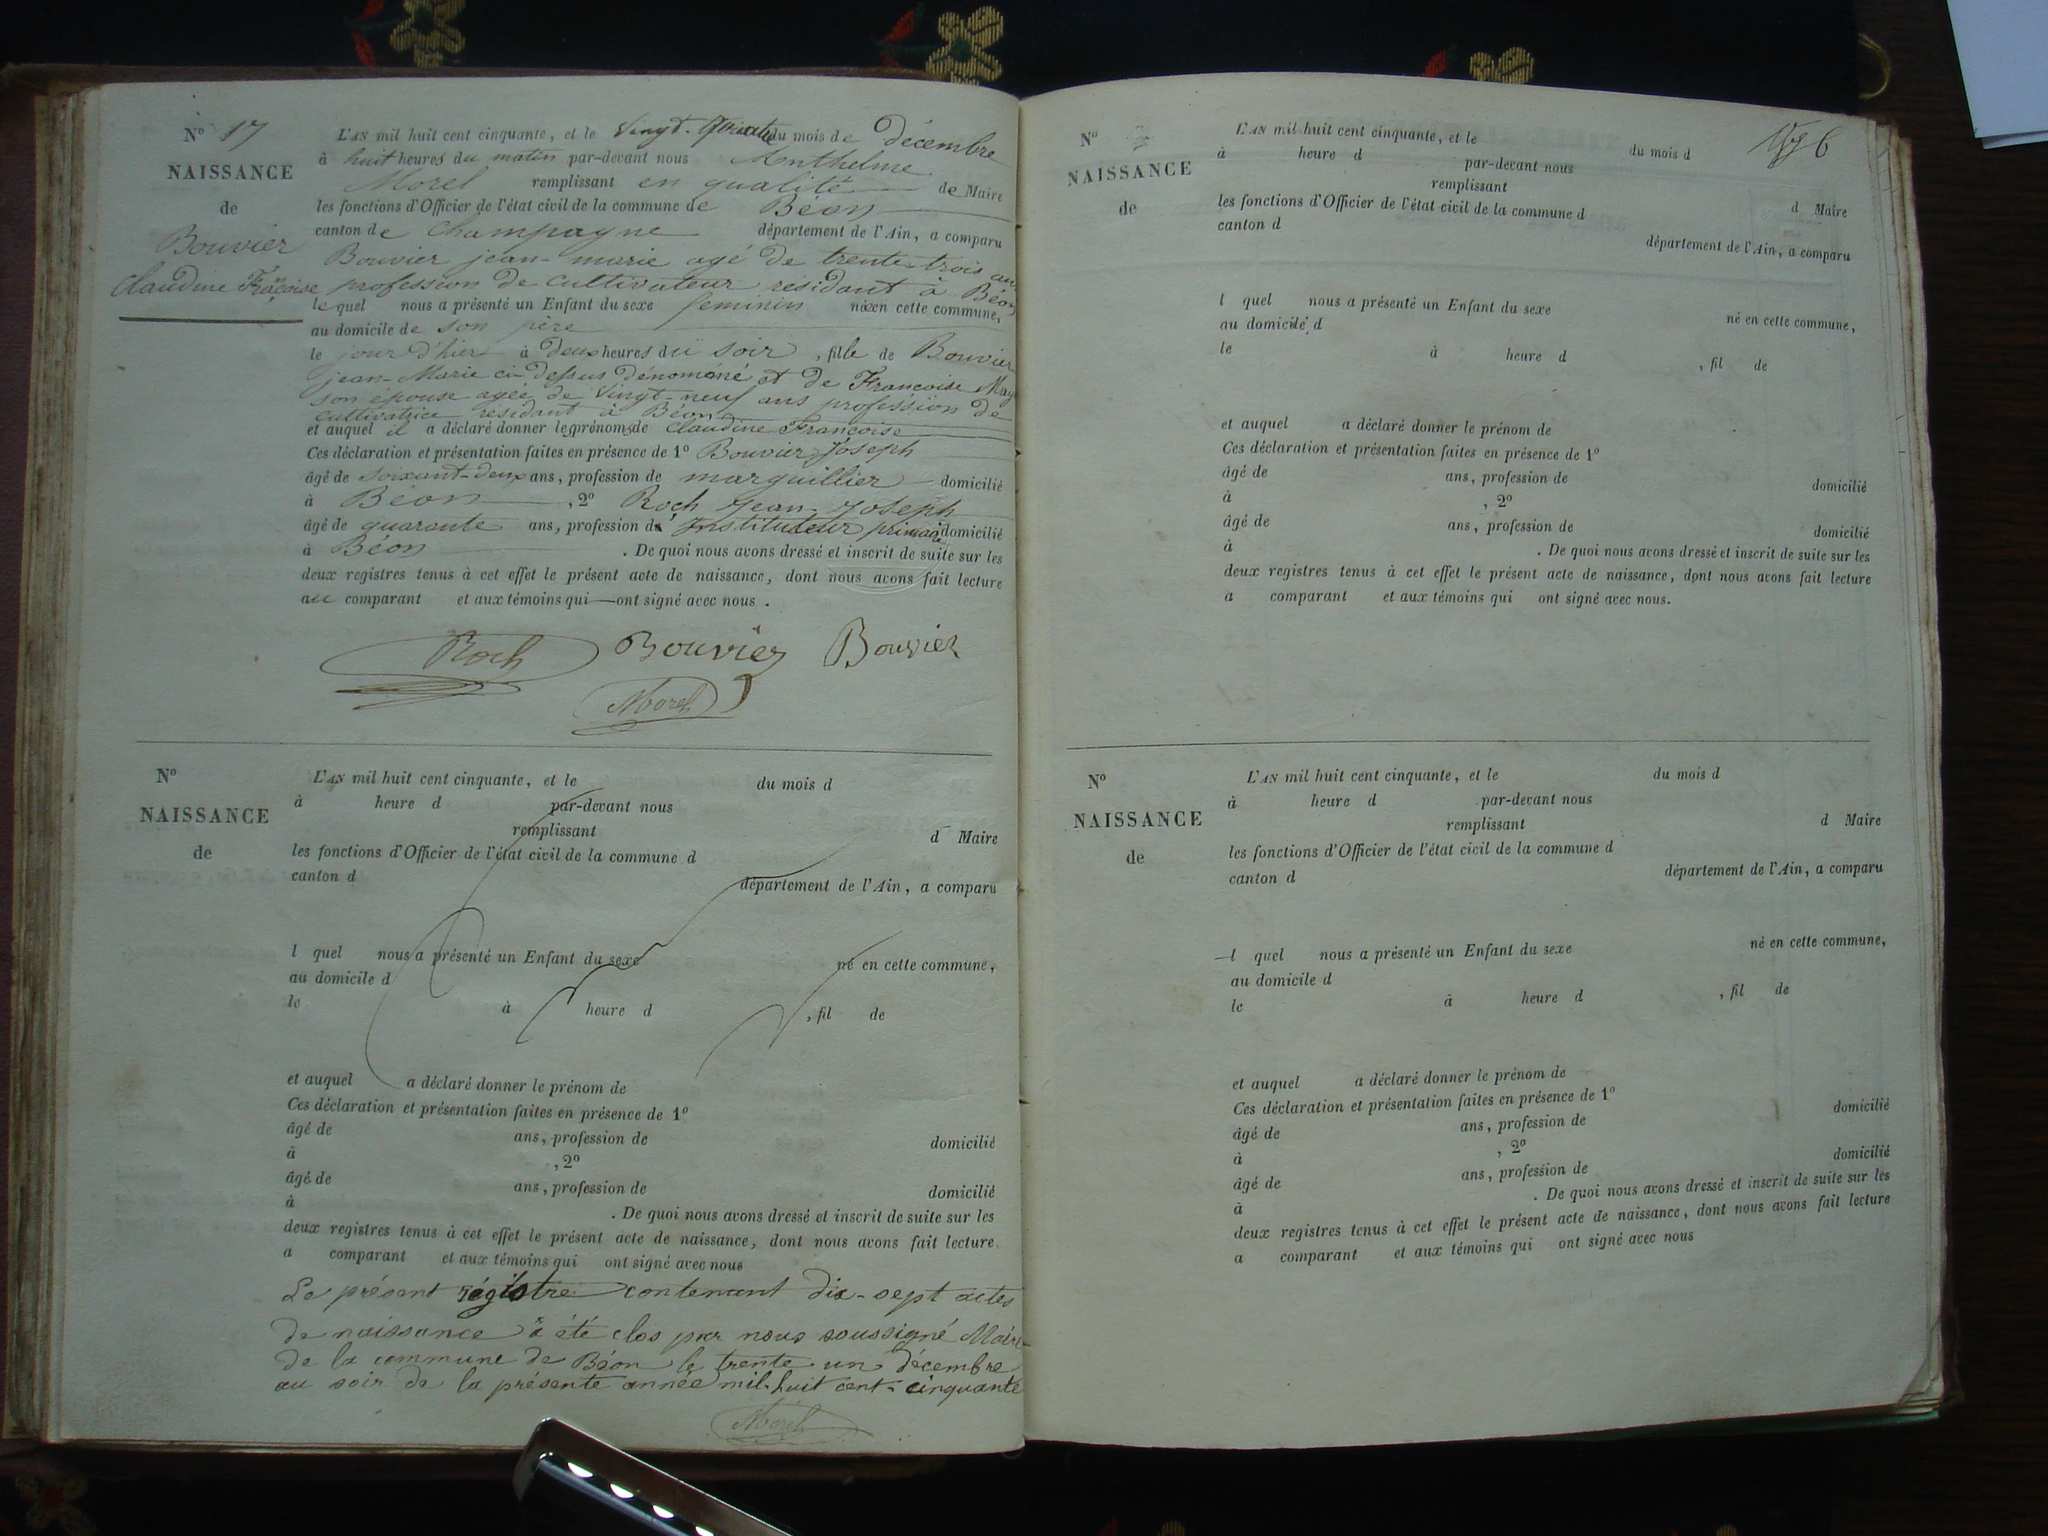 N° 17
NAISSANCE
de
Bouvier
Claudine Françoise
L'AN mil huit cent cinquante, et le Vingt-quatre du mois de décembre
à huit heures du matin par-devant nous Anthelme
Morel remplissant en qualité de Maire
les fonctions d'Officier de l'état civil de la commune de Béon
canton de Champagne département de l'Ain, a comparu
Bouvier jean-marie agé de trente-trois ans
profession de cultivateur residant à Béon
lequel nous a présenté un Enfant du sexe feminin née en cette commune,
au domicile de son père
le jour d'hier à deux heures du soir, fille de Bouvier
jean-Marie ci-dessus dénommé et de Françoise May
son épouse agée de Vingt-neuf ans profession de
cultivatrice residant à Béon
et auquel il a déclaré donner les prénoms de Claudine Françoise
Ces déclaration et présentation faites en présence de 1° Bouvier Joseph
âgé de soixant-deux ans, profession de marguillier domicilié
à Béon, 2° Roch Jean-Joseph
âgé de quarante ans, profession d'Instituteur primaire domicilié
à Béon. De quoi nous avons dressé et inscrit de suite sur les
deux registres tenus à cet effet le présent acte de naissance, dont nous avons fait lecture
au comparant et aux témoins qui ont signé avec nous.
Roch Bouvier Bouvier
Morel
N°
NAISSANCE
de
L'AN mil huit cent cinquante, et le du mois d
à heure d par-devant nous
remplissant d Maire
les fonctions d'Officier de l'état civil de la commune d
canton d département de l'Ain, a comparu
l quel nous a présenté un Enfant du sexe né en cette commune,
au domicile d
le à heure d , fil de
et auquel a déclaré donner le prénom de
Ces déclaration et présentation faites en présence de 1°
âgé de ans, profession de domicilié
à , 2°
âgé de ans, profession de domicilié
à . De quoi nous avons dressé et inscrit de suite sur les
deux registres tenus à cet effet le présent acte de naissance, dont nous avons fait lecture
a comparant et aux témoins qui ont signé avec nous
Le présent régistre contenant dix-sept actes
de naissance a été clos par nous soussigné Maire
de la commune de Béon le trente un décembre
au soir de la présente année mil-huit cent-cinquante
Morel
N°
NAISSANCE
de
L'AN mil huit cent cinquante, et le du mois d
à heure d par-devant nous
remplissant d Maire
les fonctions d'Officier de l'état civil de la commune d
canton d département de l'Ain, a comparu
l quel nous a présenté un Enfant du sexe né en cette commune,
au domicile d
le à heure d , fil de
et auquel a déclaré donner le prénom de
Ces déclaration et présentation faites en présence de 1°
âgé de ans, profession de domicilié
à , 2°
âgé de ans, profession de domicilié
à . De quoi nous avons dressé et inscrit de suite sur les
deux registres tenus à cet effet le présent acte de naissance, dont nous avons fait lecture
a comparant et aux témoins qui ont signé avec nous.
N°
NAISSANCE
de
L'AN mil huit cent cinquante, et le du mois d
à heure d par-devant nous
remplissant d Maire
les fonctions d'Officier de l'état civil de la commune d
canton d département de l'Ain, a comparu
l quel nous a présenté un Enfant du sexe né en cette commune,
au domicile d
le à heure d , fil de
et auquel a déclaré donner le prénom de
Ces déclaration et présentation faites en présence de 1°
âgé de ans, profession de domicilié
à , 2°
âgé de ans, profession de domicilié
à . De quoi nous avons dressé et inscrit de suite sur les
deux registres tenus à cet effet le présent acte de naissance, dont nous avons fait lecture
a comparant et aux témoins qui ont signé avec nous